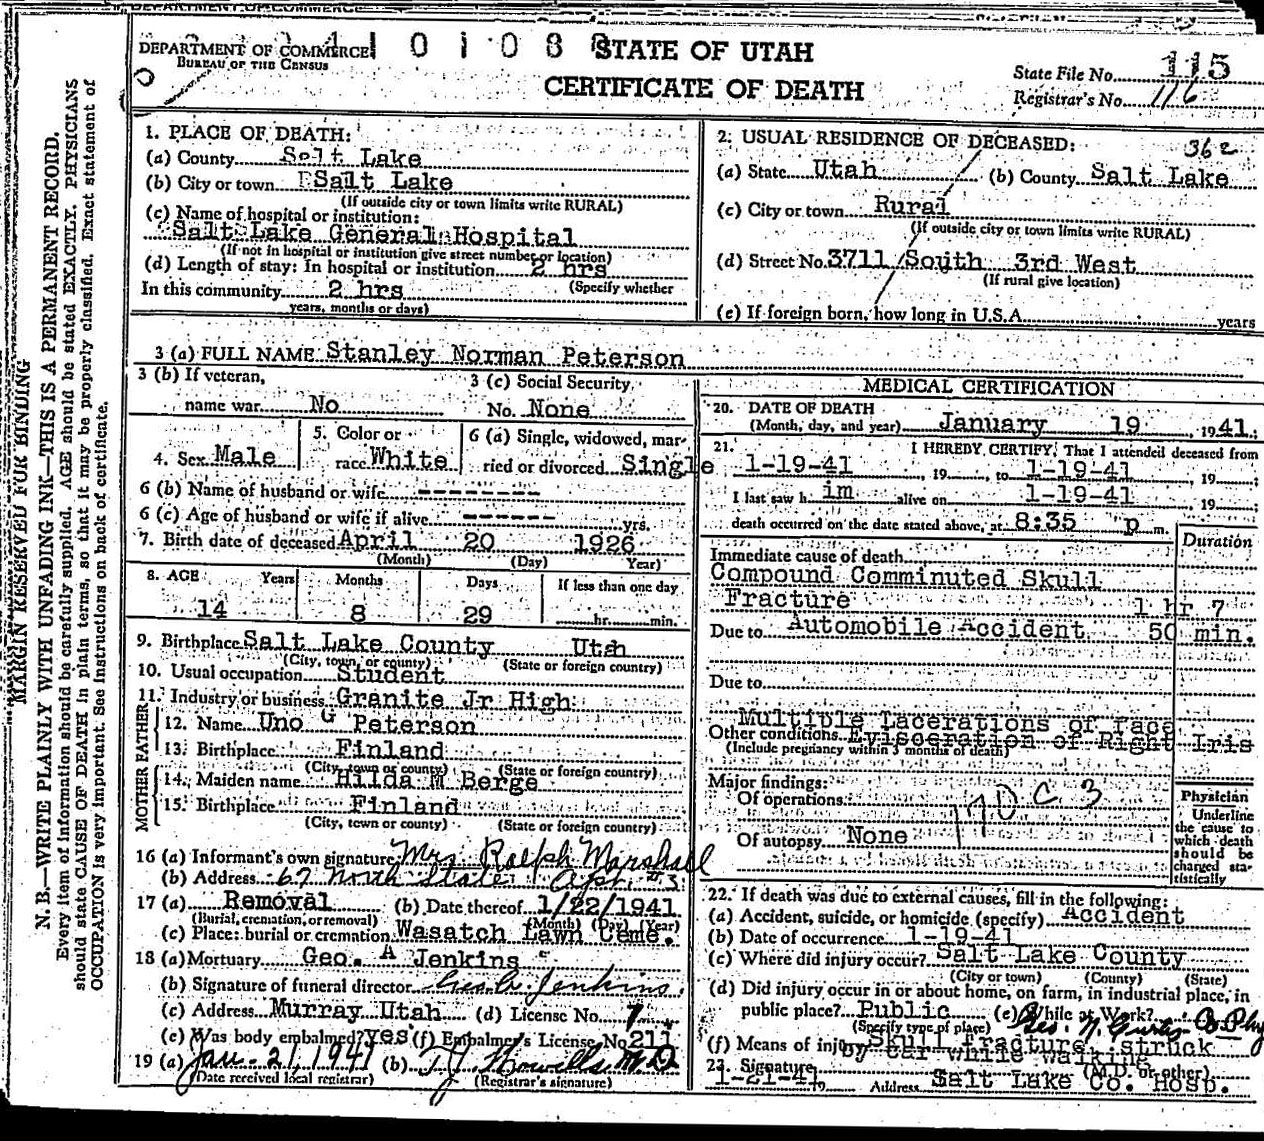 DEPARTMENT OF COMMERCE
BUREAU OF THE CENSUS
STATE OF UTAH
CERTIFICATE OF DEATH
State File No. 115
Registrar's No. 116
MARGIN RESERVED FOR BINDING
N. B.—WRITE PLAINLY WITH UNFADING INK—THIS IS A PERMANENT RECORD.
Every item of information should be carefully supplied. AGE should be stated EXACTLY. PHYSICIANS
should state CAUSE OF DEATH in plain terms, so that it may be properly classified. Exact statement of
OCCUPATION is very important. See instructions on back of certificate.
1. PLACE OF DEATH:
(a) County Salt Lake
(b) City or town Salt Lake
(If outside city or town limits write RURAL)
(c) Name of hospital or institution:
Salt Lake General Hospital
(If not in hospital or institution give street number or location)
(d) Length of stay: In hospital or institution 2 hrs
(Specify whether
In this community 2 hrs
years, months or days)
2. USUAL RESIDENCE OF DECEASED: 362
(a) State Utah (b) County Salt Lake
(c) City or town Rural
(If outside city or town limits write RURAL)
(d) Street No. 3711 South 3rd West
(If rural give location)
(e) If foreign born, how long in U.S.A. years
3 (a) FULL NAME Stanley Norman Peterson
3 (b) If veteran, name war No
3 (c) Social Security No. None
4. Sex Male
5. Color or race White
6 (a) Single, widowed, married or divorced Single
6 (b) Name of husband or wife --------
6 (c) Age of husband or wife if alive ------ yrs.
7. Birth date of deceased April 20 1926
(Month) (Day) Year)
8. AGE Years Months Days If less than one day
14 8 29 hr. min.
9. Birthplace Salt Lake County Utah
(City, town, or county) (State or foreign country)
10. Usual occupation Student
11. Industry or business Granite Jr High
FATHER
12. Name Uno G Peterson
13. Birthplace Finland
(City, town or county) (State or foreign country)
MOTHER
14. Maiden name Hilda M Berge
15. Birthplace Finland
(City, town or county) (State or foreign country)
16 (a) Informant's own signature Mrs Ralph Marshall
(b) Address 67 North State Apt. #3
17 (a) Removal (b) Date thereof 1/22/1941
(Burial, cremation, or removal) (Month) (Day) (Year)
(c) Place: burial or cremation Wasatch Lawn Ceme.
18 (a) Mortuary Geo. A Jenkins
(b) Signature of funeral director Geo. A. Jenkins.
(c) Address Murray Utah (d) License No. 7
(e) Was body embalmed? yes (f) Embalmer's License No 211
19 (a) Jan-21, 1941 (b) T J Howells M.D
(Date received local registrar) (Registrar's signature)
MEDICAL CERTIFICATION
20. DATE OF DEATH
(Month, day, and year) January 19, 1941
21. I HEREBY CERTIFY, That I attended deceased from
1-19-41, 19 , to 1-19-41, 19 ;
I last saw h im alive on 1-19-41, 19 ;
death occurred on the date stated above, at 8:35 p m.
Duration
Immediate cause of death
Compound Comminuted Skull
Fracture 1 hr ?
Due to Automobile Accident 50 min.
Due to
Multiple Lacerations of face
Other conditions Evisceration of Right Iris
(Include pregnancy within 3 months of death)
Major findings:
Of operations
Of autopsy None
Physician
Underline
the cause to
which death
should be
charged sta-
tistically
22. If death was due to external causes, fill in the following:
(a) Accident, suicide, or homicide (specify) Accident
(b) Date of occurrence 1-19-41
(c) Where did injury occur? Salt Lake County
(City or town) (County) (State)
(d) Did injury occur in or about home, on farm, in industrial place, in
public place? Public (e) While at Work?
(Specify type of place)
(f) Means of injury Skull fracture, struck
by car while walking
23. Signature (M.D. or other)
1-21-41 Address Salt Lake Co. Hosp.